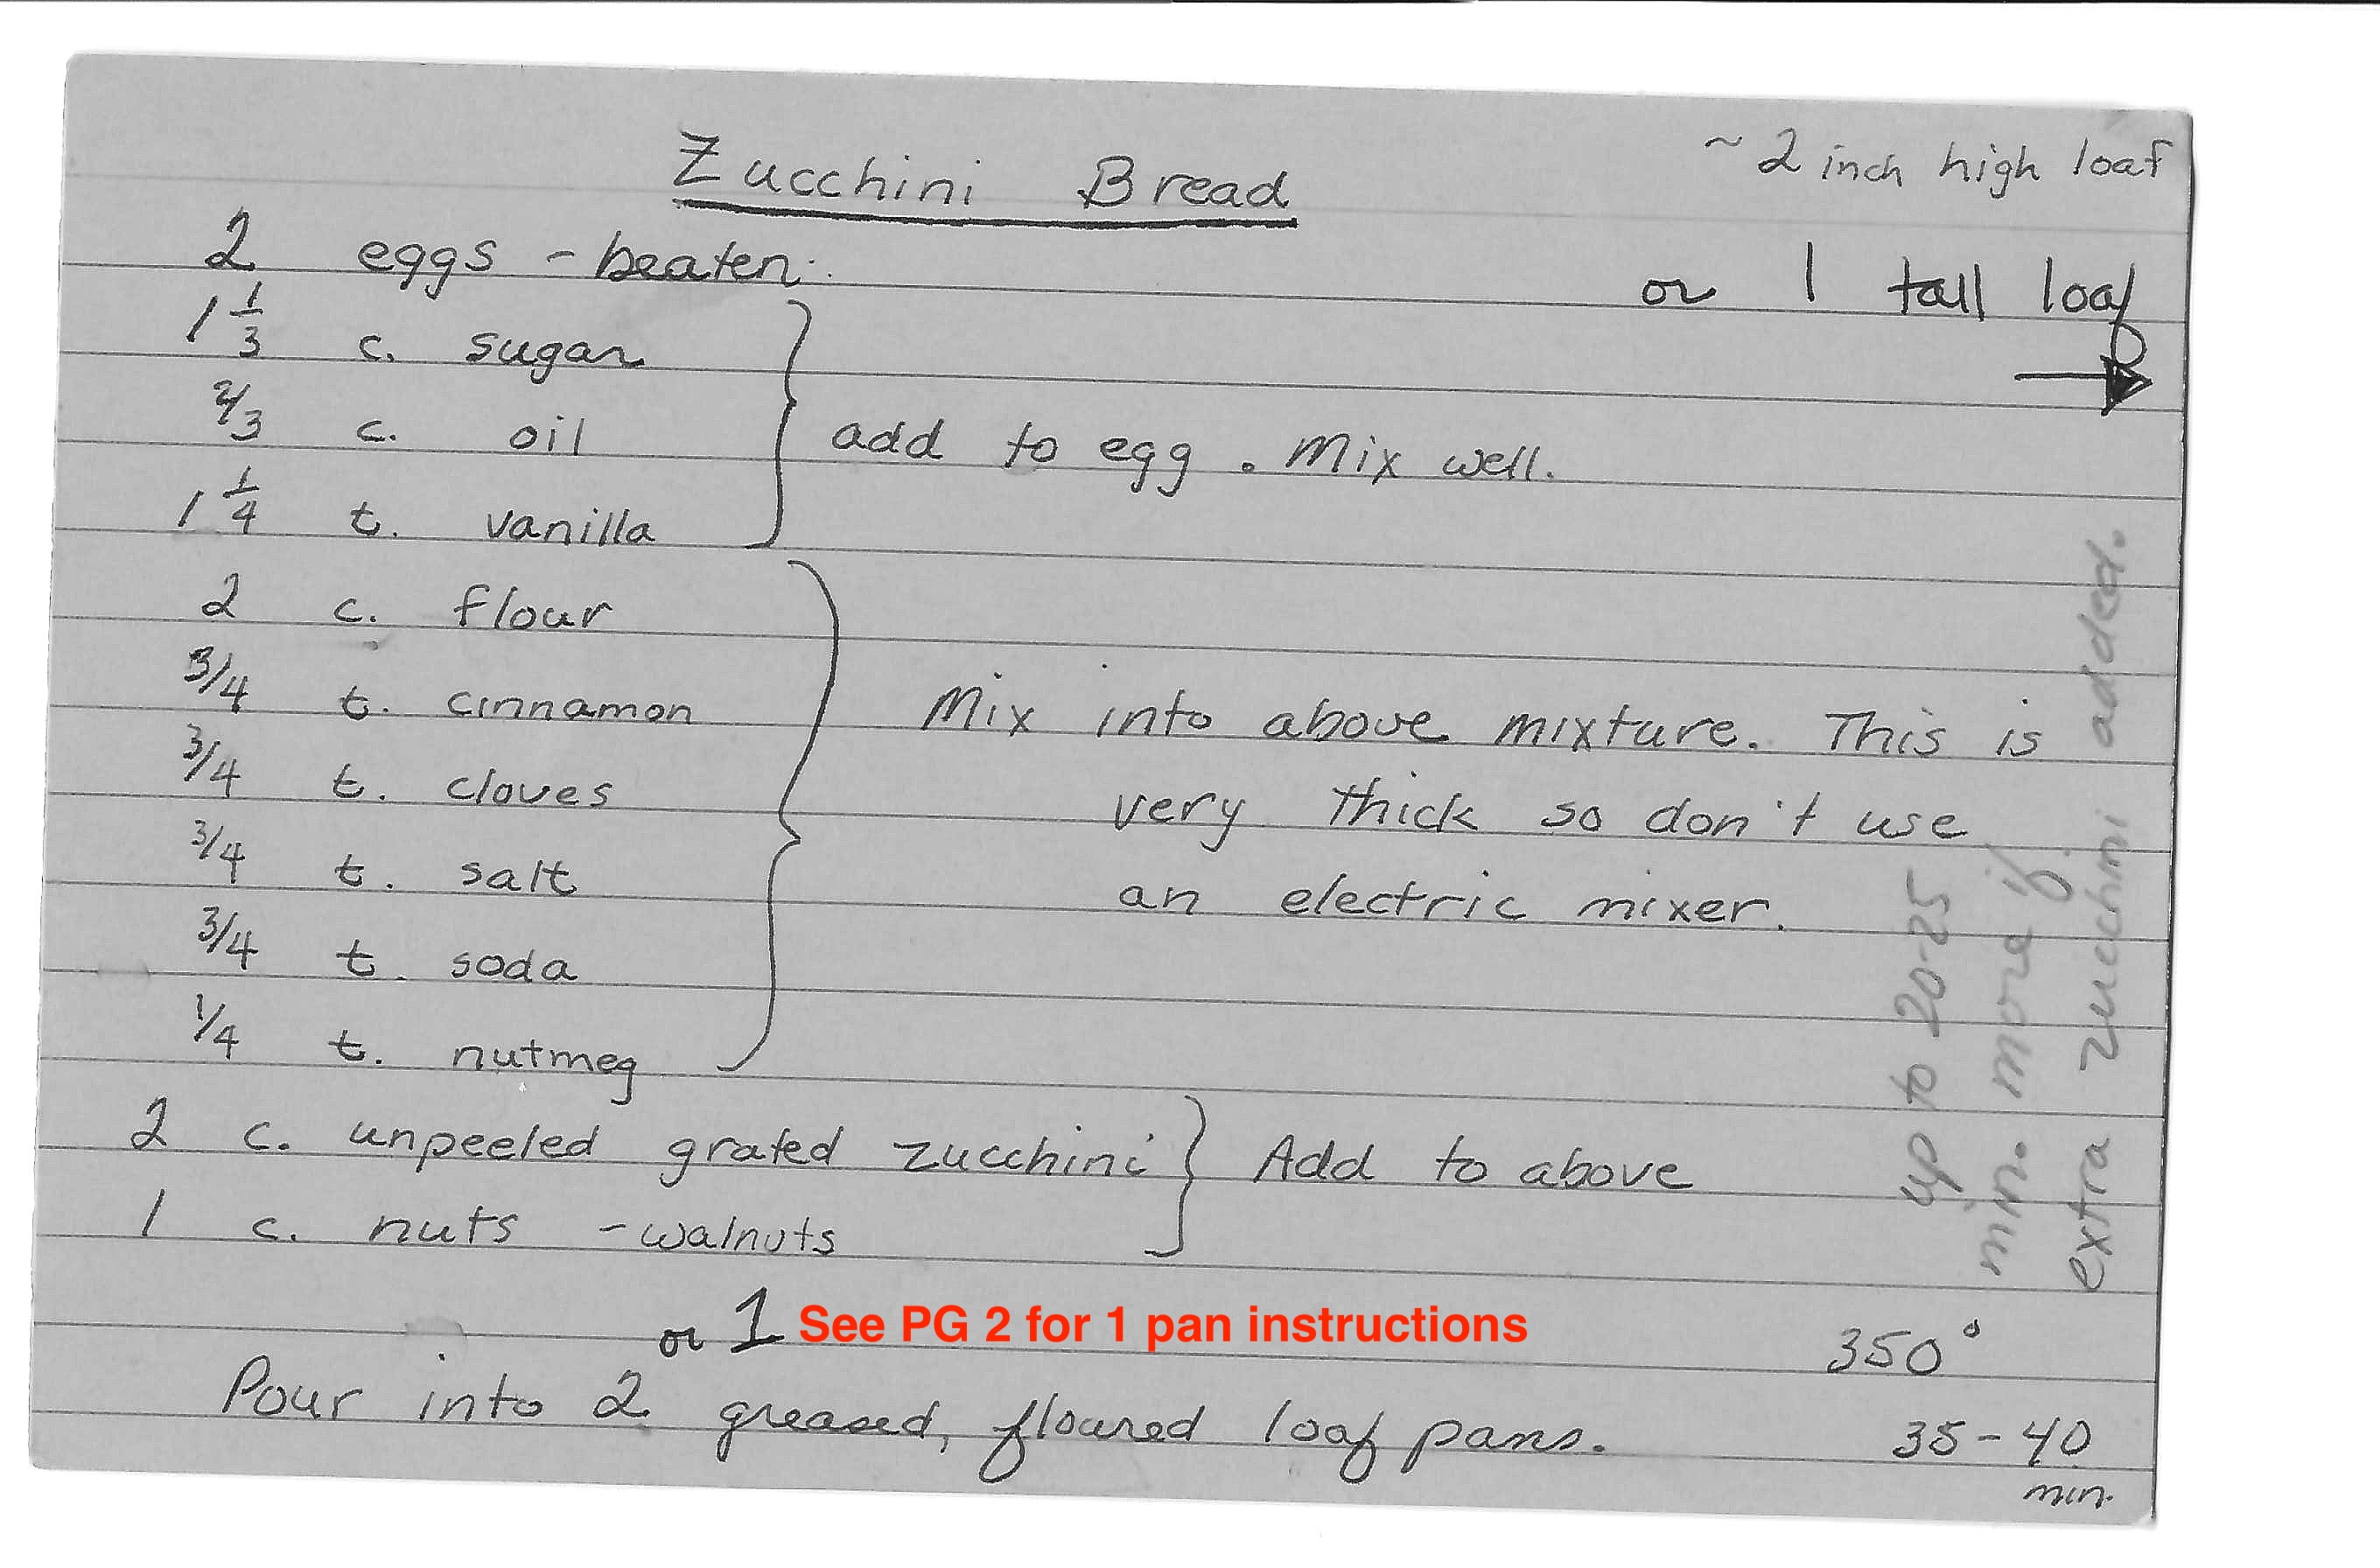 Zucchini Bread
~ 2 inch high loaf
or 1 tall loaf
2 eggs - beaten
1 1/3 c. sugar
2/3 c. oil
add to egg. Mix well.
1 1/4 t. vanilla
2 c. flour
3/4 t. cinnamon
Mix into above mixture. This is
3/4 t. cloves
very thick so don't use
3/4 t. salt
an electric mixer.
3/4 t. soda
1/4 t. nutmeg
2 c. unpeeled grated zucchini
Add to above
1 c. nuts - walnuts
up to 20-25
min. more if
extra zucchini added.
or 1 See PG 2 for 1 pan instructions
350°
Pour into 2 greased, floured loaf pans.
35-40
min.